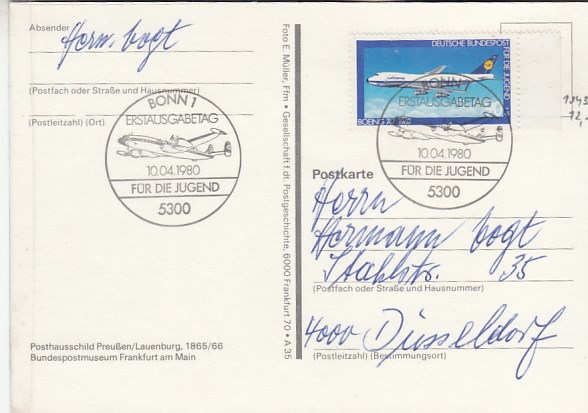 Absender
Herm. Vogt
(Postfach oder Straße und Hausnummer)
BONN 1
ERSTAUSGABETAG
(Postleitzahl) (Ort)
10.04.1980
FÜR DIE JUGEND
5300
Posthausschild Preußen/Lauenburg, 1865/66
Bundespostmuseum Frankfurt am Main
Foto E. Müller, Ffm • Gesellschaft f. dt. Postgeschichte, 6000 Frankfurt 70 • A 35
DEUTSCHE BUNDESPOST
FÜR DIE JUGEND
Lufthansa
BONN 1
ERSTAUSGABETAG
10.04.1980
FÜR DIE JUGEND
5300
Postkarte
Herrn
Hermann Vogt
Stahlstr. 35
(Postfach oder Straße und Hausnummer)
4000 Düsseldorf
(Postleitzahl) (Bestimmungsort)